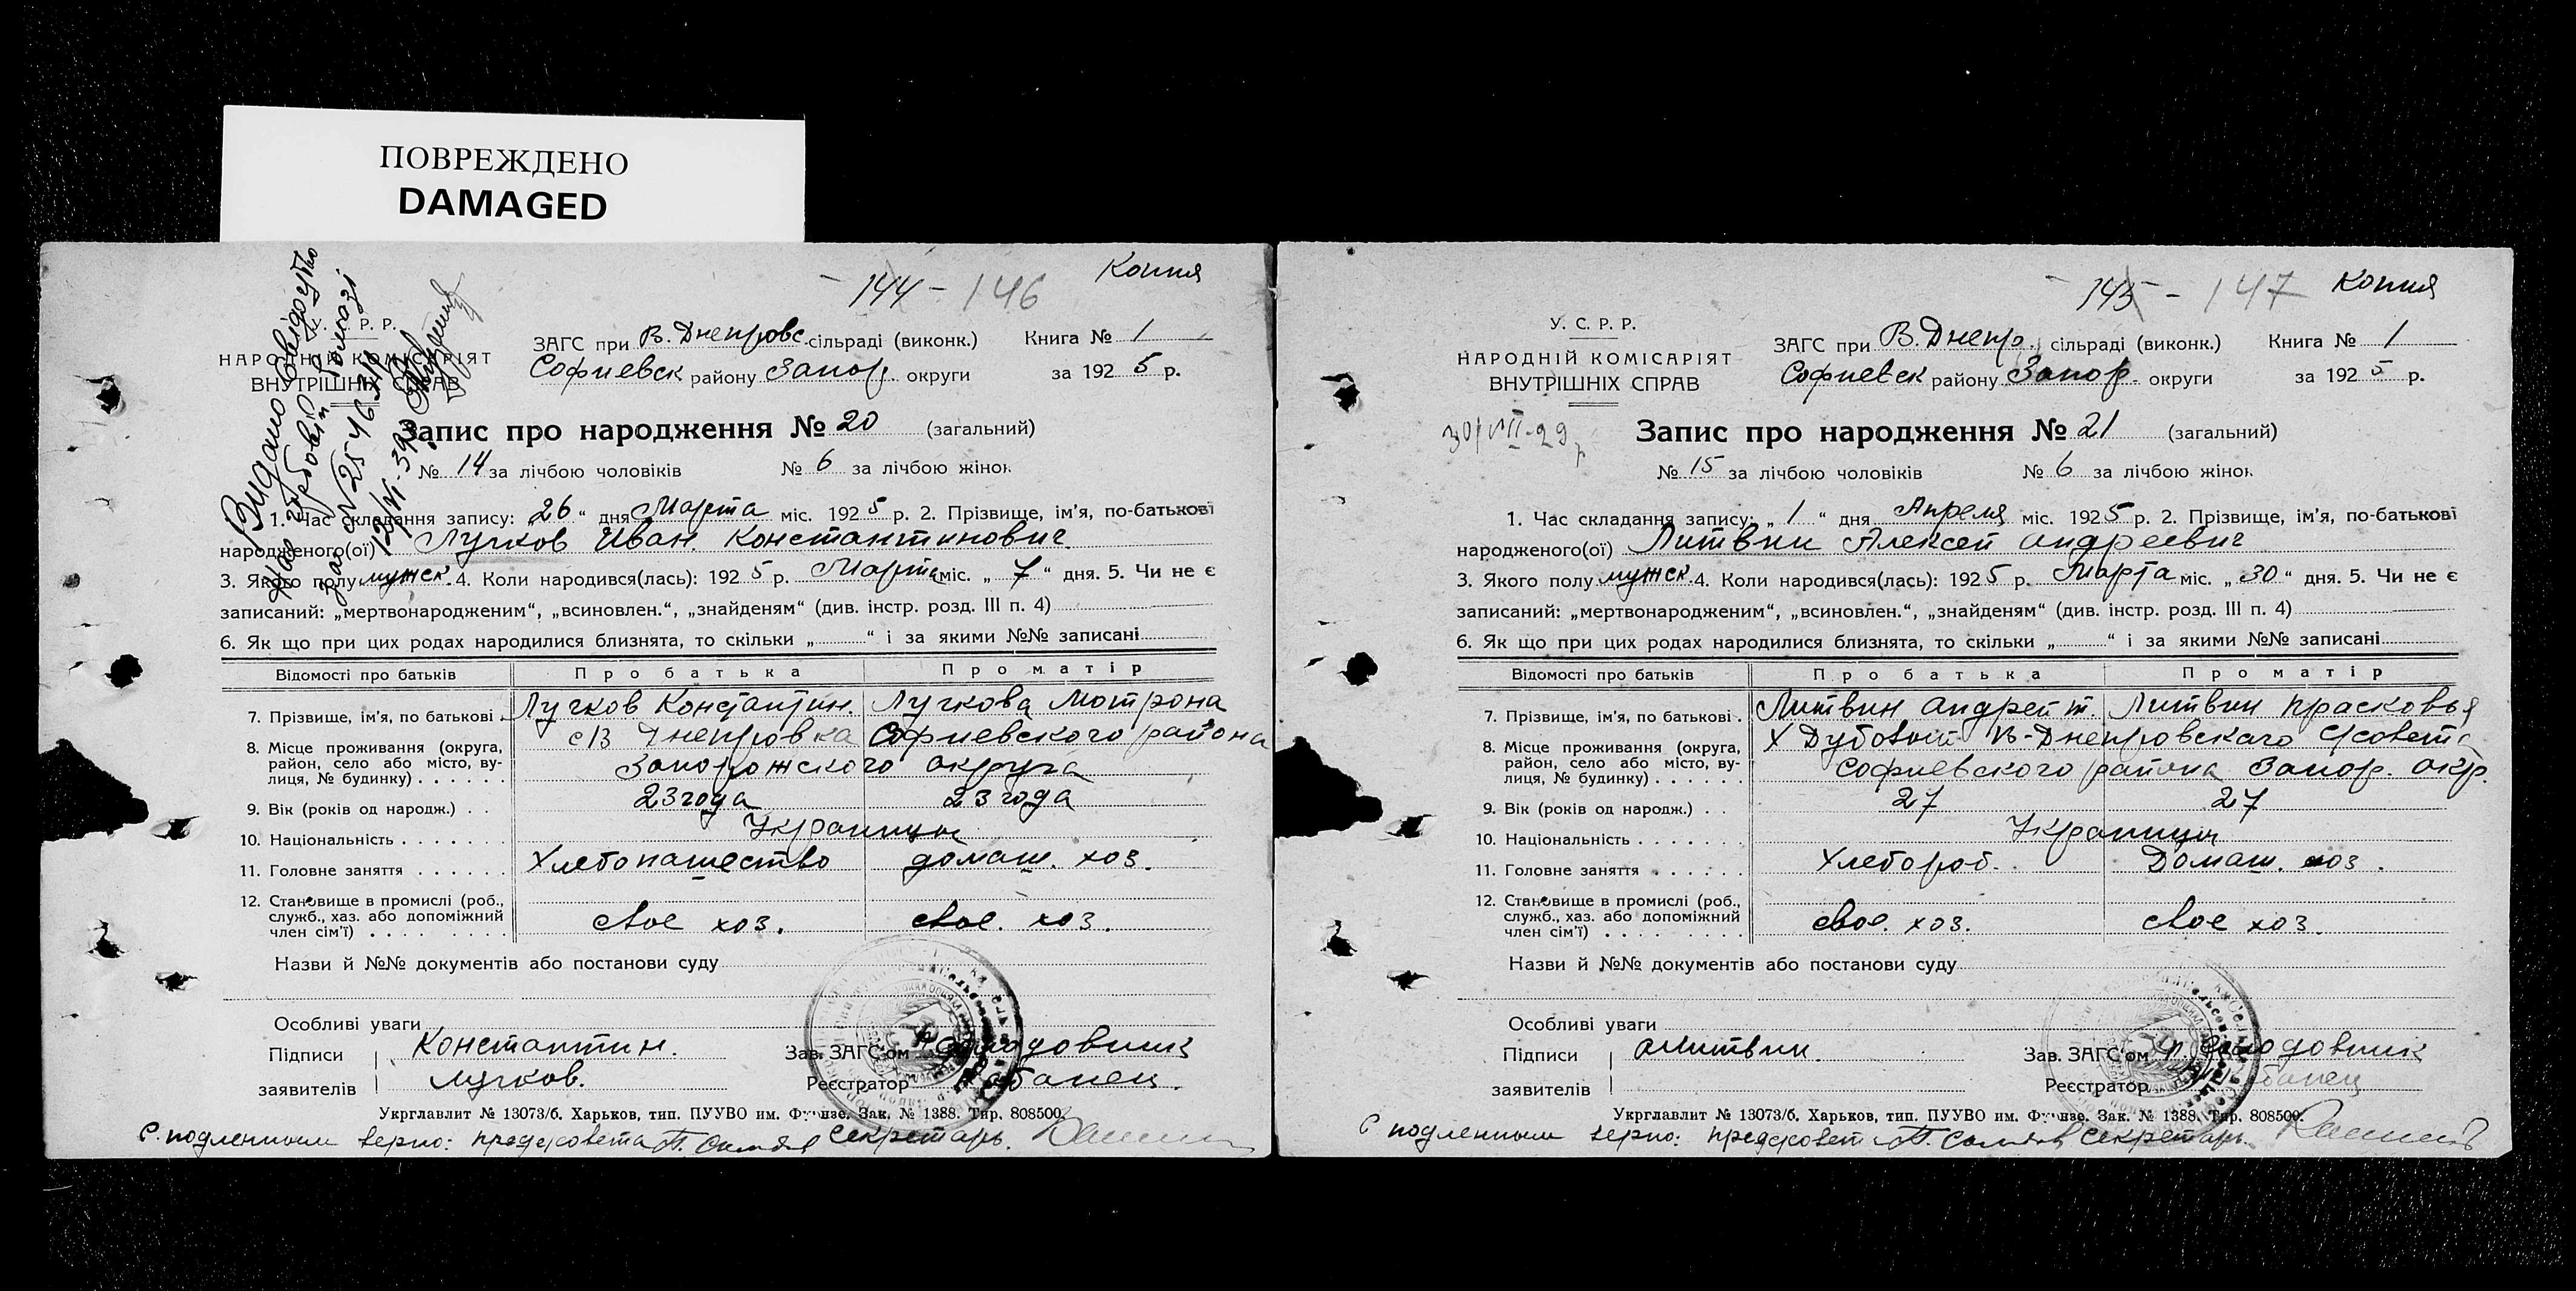 ПОВРЕЖДЕНО
DAMAGED
144 - 146
Копия
У. Р. Р.
НАРОДНІЙ КОМІСАРІЯТ
ВНУТРІШНІХ СПРАВ
ЗАГС при В. Днепровс. сільраді (виконк.) Книга № 1
Софиевск району Запор. округи за 1925 р.
Запис про народження № 20 (загальний)
№ 14 за лічбою чоловіків № 6 за лічбою жінок
1. Час складання запису: „26“ дня Марта міс. 1925 р. 2. Прізвище, ім'я, по-батькові
народженого(ої) Лучков Иван Константинович
3. Якого полу мужск. 4. Коли народився(лась): 1925 р. Марта міс. „7“ дня. 5. Чи не є
записаний: „мертвонародженим“, „всиновлен.“, „знайденям“ (див. інстр. розд. III п. 4)
6. Як що при цих родах народилися близнята, то скільки „ “ і за якими №№ записані
Відомості про батьків Про батька Про матір
7. Прізвище, ім'я, по батькові Лучков Константин. Лучкова Мотрона
8. Місце проживання (округа, район, село або місто, вулиця, № будинку) с В Днепровка Софиевского района
Запорожского округа
9. Вік (років од народж.) 23 года 23 года
10. Національність Украинцы
11. Головне заняття Хлебопашество домаш. хоз.
12. Становище в промислі (роб., служб., хаз. або допоміжний член сім'ї) свое хоз. свое. хоз.
Назви й №№ документів або постанови суду
Особливі уваги
Підписи заявителів Константин.
Лучков.
Зав. ЗАГС'ом
Реєстратор
Укрглавлит № 13073/б. Харьков, тип. ПУУВО им. Фрунзе. Зак. № 1388. Тир. 808500.
С подленным верно: предсовета Секретарь.
Видано свідоцтво
145 - 147
Копия
У. С. Р. Р.
НАРОДНІЙ КОМІСАРІЯТ
ВНУТРІШНІХ СПРАВ
ЗАГС при В. Днепр. сільраді (виконк.) Книга № 1
Софиевск району Запор. округи за 1925 р.
30/VII-29 р
Запис про народження № 21 (загальний)
№ 15 за лічбою чоловіків № 6 за лічбою жінок
1. Час складання запису: „1“ дня Апреля міс. 1925 р. 2. Прізвище, ім'я, по-батькові
народженого(ої) Литвин Алексей Андреевич
3. Якого полу мужск. 4. Коли народився(лась): 1925 р. Марта міс. „30“ дня. 5. Чи не є
записаний: „мертвонародженим“, „всиновлен.“, „знайденям“ (див. інстр. розд. III п. 4)
6. Як що при цих родах народилися близнята, то скільки „ “ і за якими №№ записані
Відомості про батьків Про батька Про матір
7. Прізвище, ім'я, по батькові Литвин Андрей т. Литвин Прасковья
8. Місце проживання (округа, район, село або місто, вулиця, № будинку) Х Дубовый В-Днепровскаго с/совета
Софиевского района Запор. окр.
9. Вік (років од народж.) 27 27
10. Національність Украинцы
11. Головне заняття Хлебороб. Домаш. хоз.
12. Становище в промислі (роб., служб., хаз. або допоміжний член сім'ї) свое. хоз. свое хоз.
Назви й №№ документів або постанови суду
Особливі уваги
Підписи заявителів Алитвин.
Зав. ЗАГС'ом
Реєстратор
Укрглавлит № 13073/б. Харьков, тип. ПУУВО им. Фрунзе. Зак. № 1388. Тир. 808500.
С подленным верно: предсовет Секретарь.